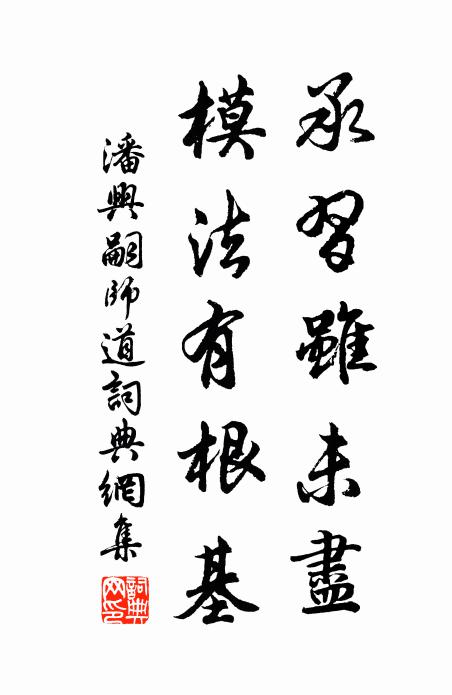 承習雖未盡
模法有根基
潘興嗣師道詞典網集
詞典网印